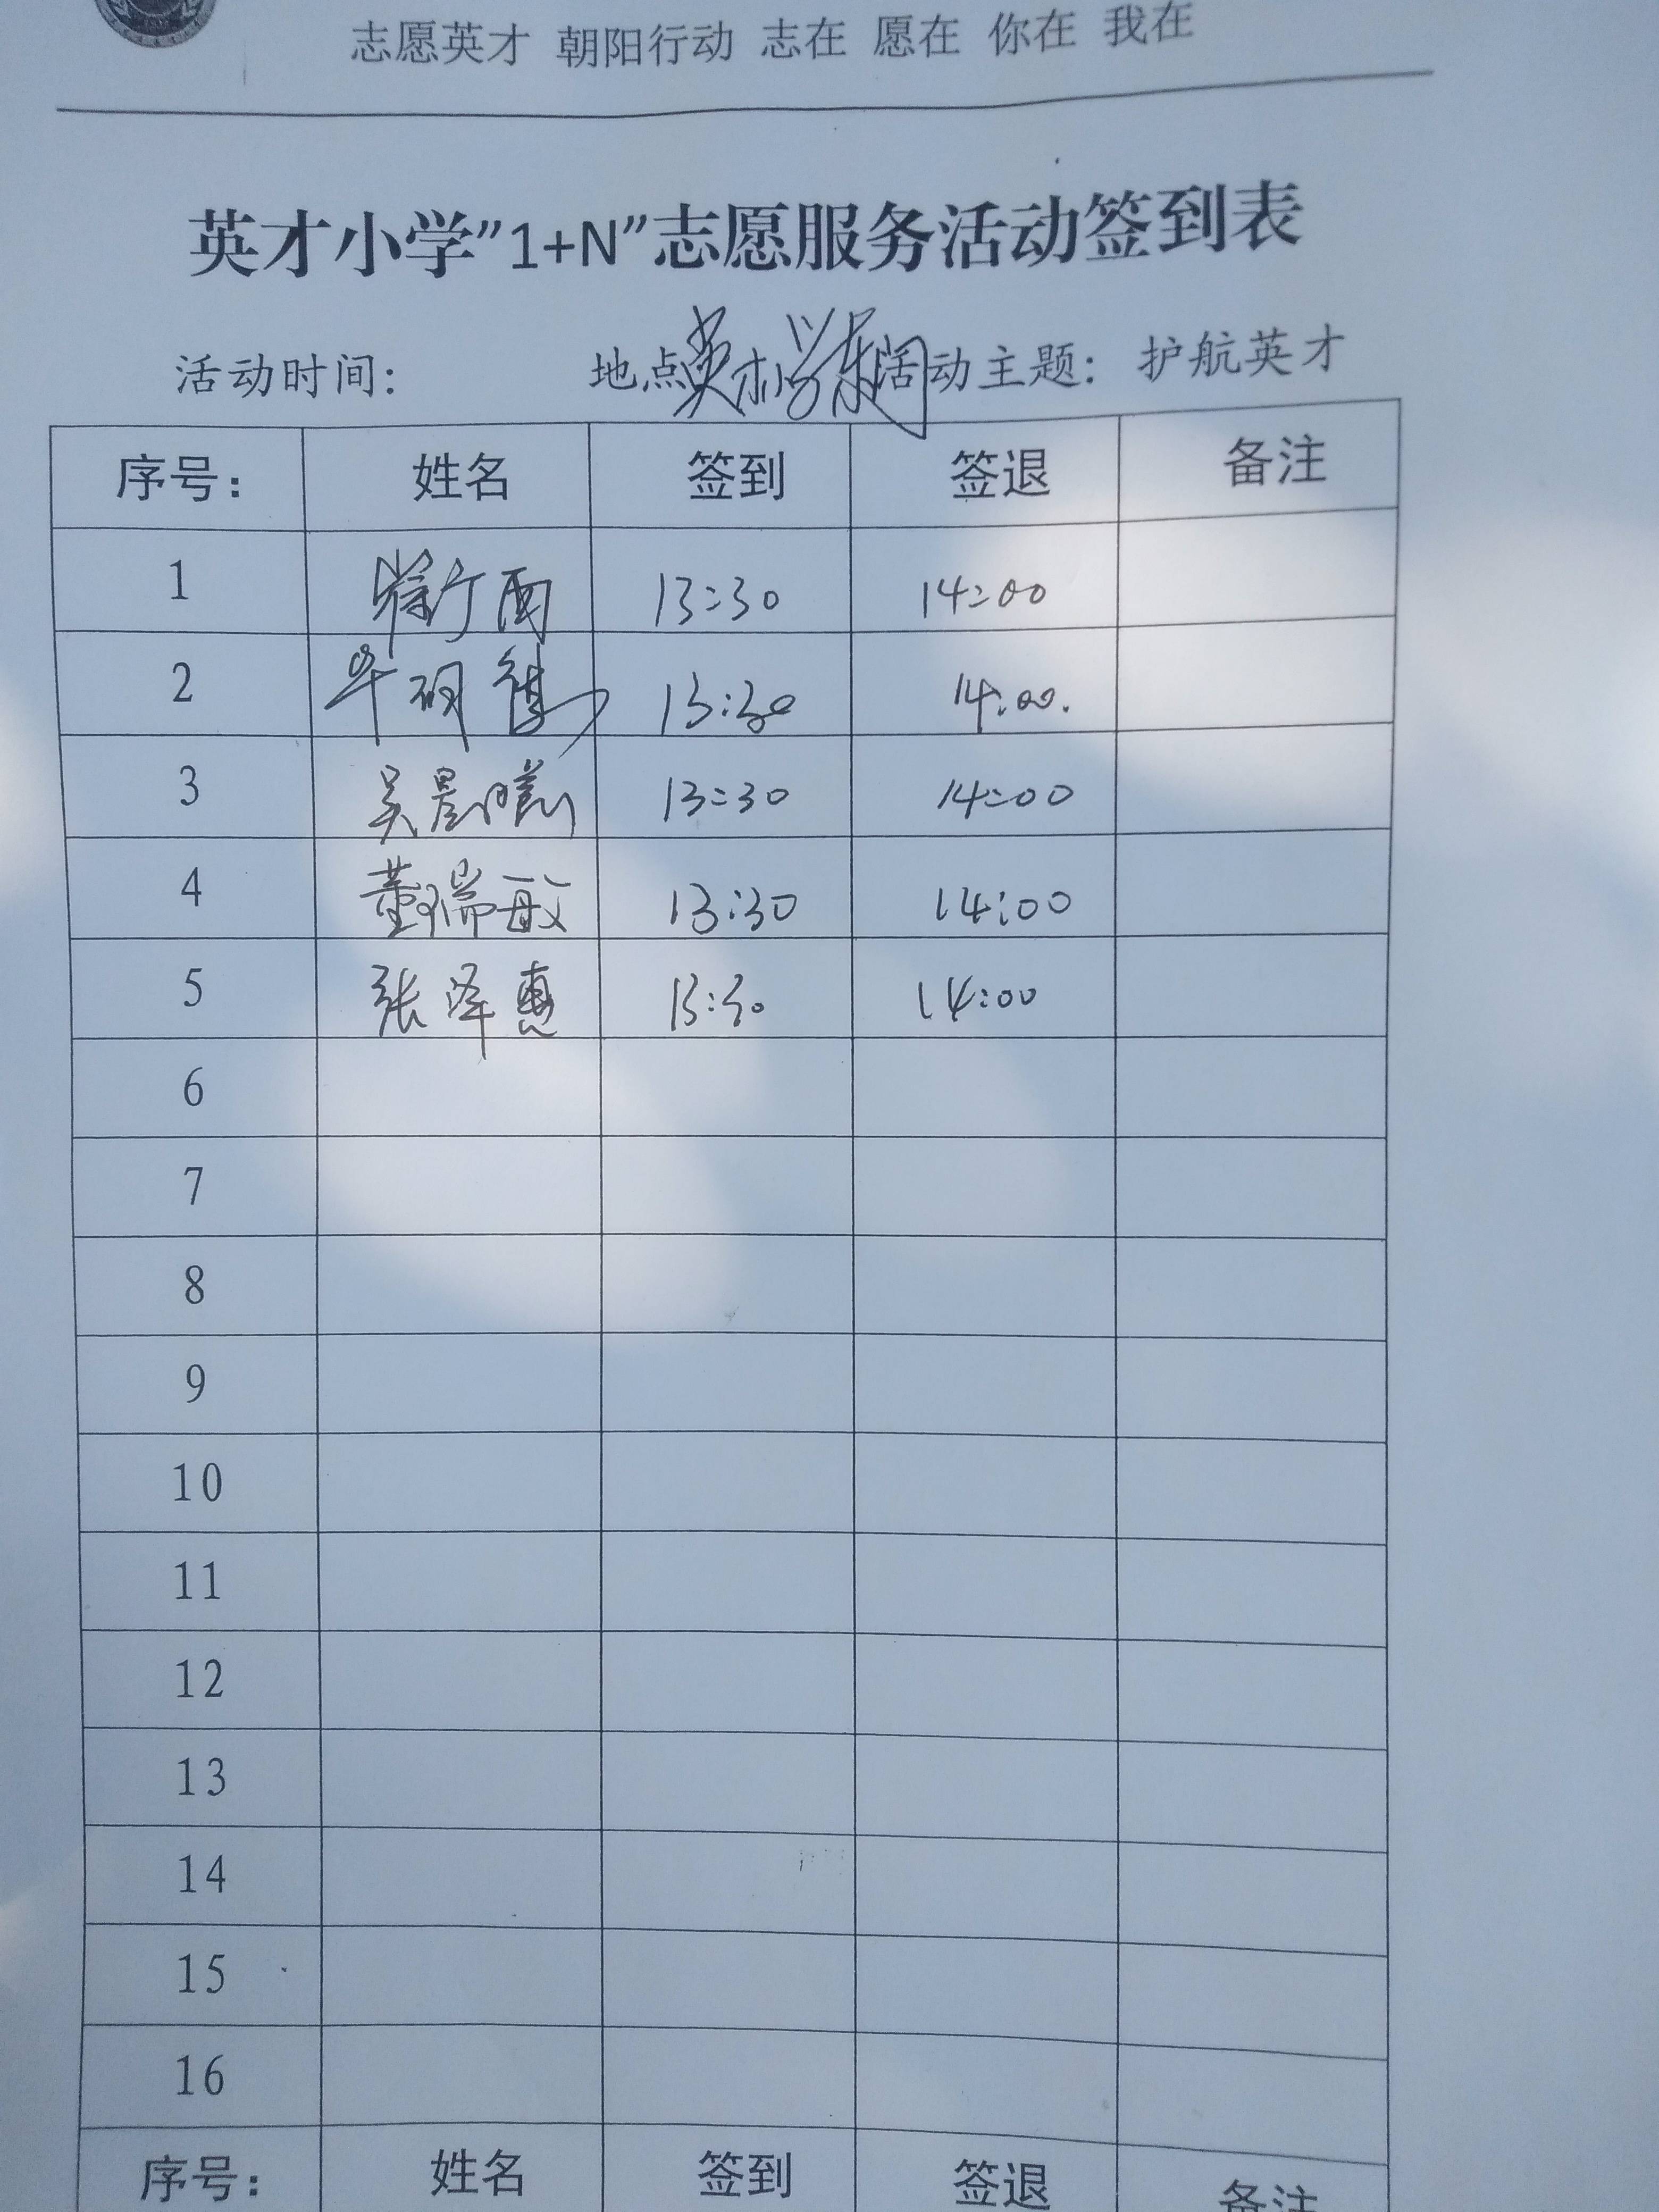 志愿英才 朝阳行动 志在 愿在 你在 我在
英才小学”1+N”志愿服务活动签到表
活动时间: 地点 英才小学东门 活动主题: 护航英才
序号: 姓名 签到 签退 备注
1 13:30 14:00
2 13:30 14:00.
3 吴晨曦 13:30 14:00
4 董瑞敏 13:30 14:00
5 张泽惠 13:30 14:00
6
7
8
9
10
11
12
13
14
15
16
序号: 姓名 签到 签退 备注